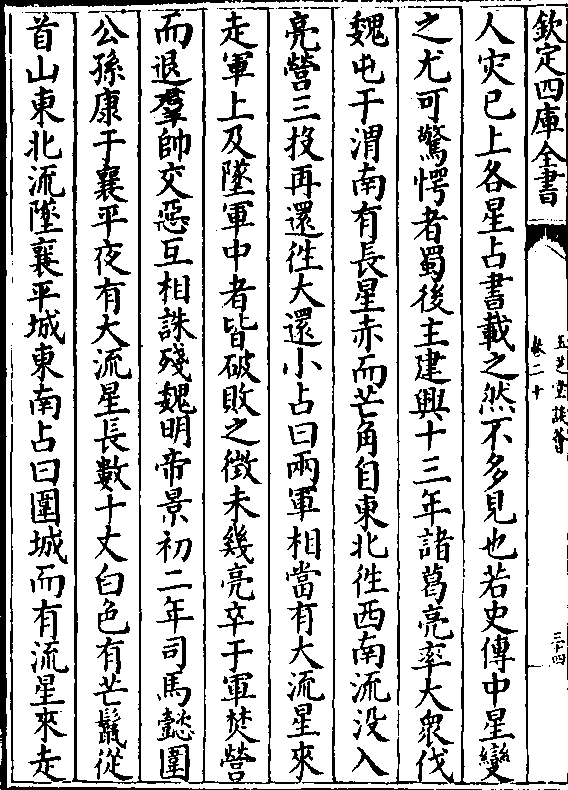 欽定四庫全書
人灾已上各星占書載之然不多見也若史傳中星變
之尤可驚愕者蜀後主建興十三年諸葛亮率大衆伐
魏屯于渭南有長星赤而芒角自東北徃西南流没入
亮營三投再還徃大還小占曰兩軍相當有大流星來
走軍上及墜軍中者皆破敗之徴未幾亮卒于軍焚營
而退羣帥交惡互相誅殘魏明帝景初二年司馬懿圍
公孫康于襄平夜有大流星長數十丈白色有芒鬛從
首山東北流墜襄平城東南占曰圍城而有流星來走
玉芝堂談薈
卷二十
三十四